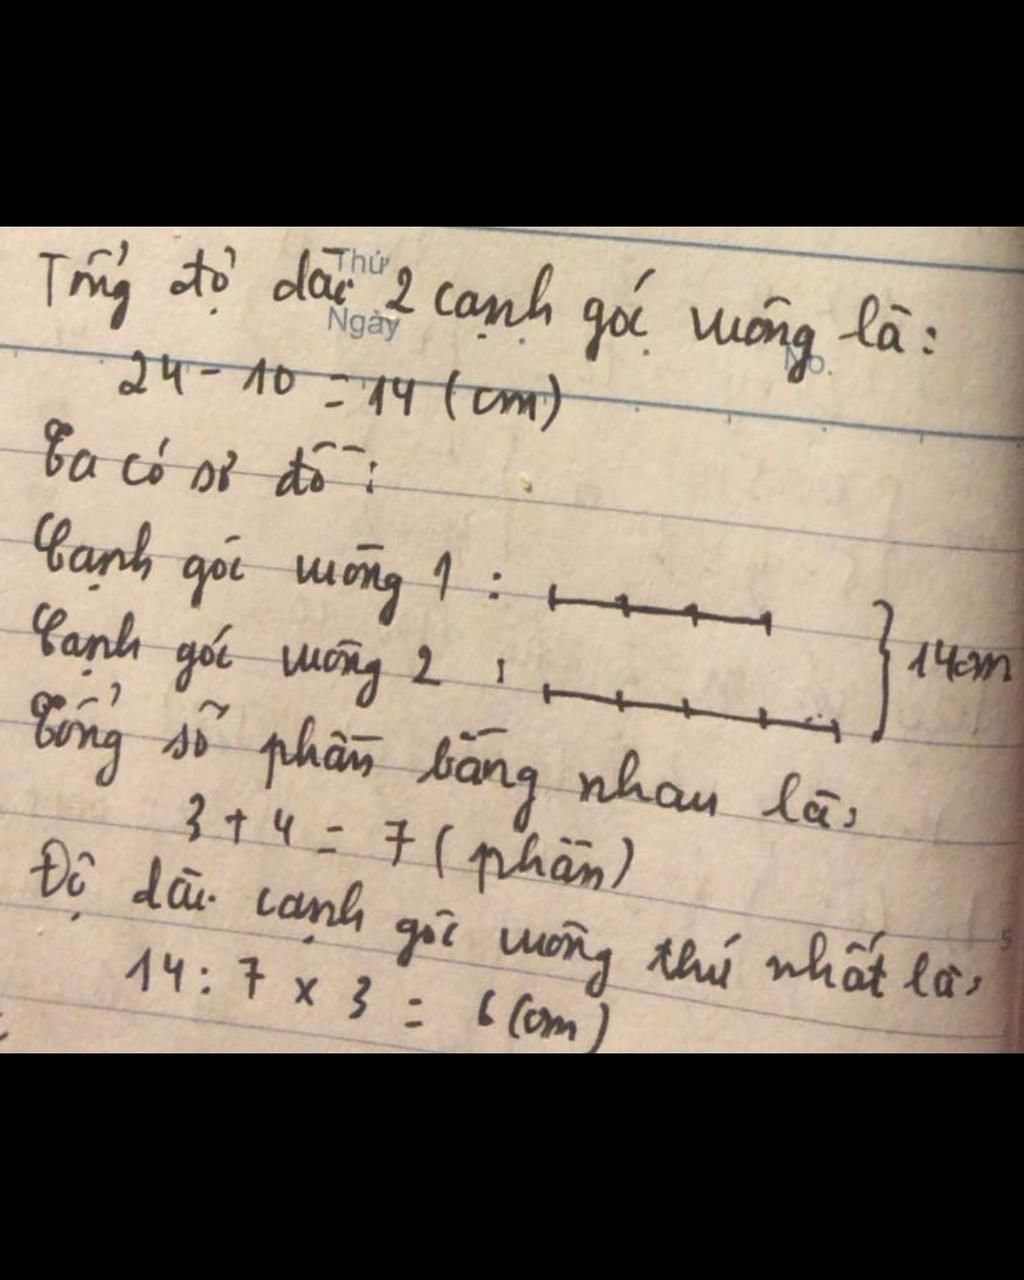 Thứ
Ngày
No.
Tổng độ dài 2 cạnh góc vuông là:
24 - 10 = 14 (cm)
Ta có sơ đồ:
Cạnh góc vuông 1 :
Cạnh góc vuông 2 :
14cm
Tổng số phần bằng nhau là:
3 + 4 = 7 (phần)
Độ dài cạnh góc vuông thứ nhất là:
14 : 7 x 3 = 6 (cm)